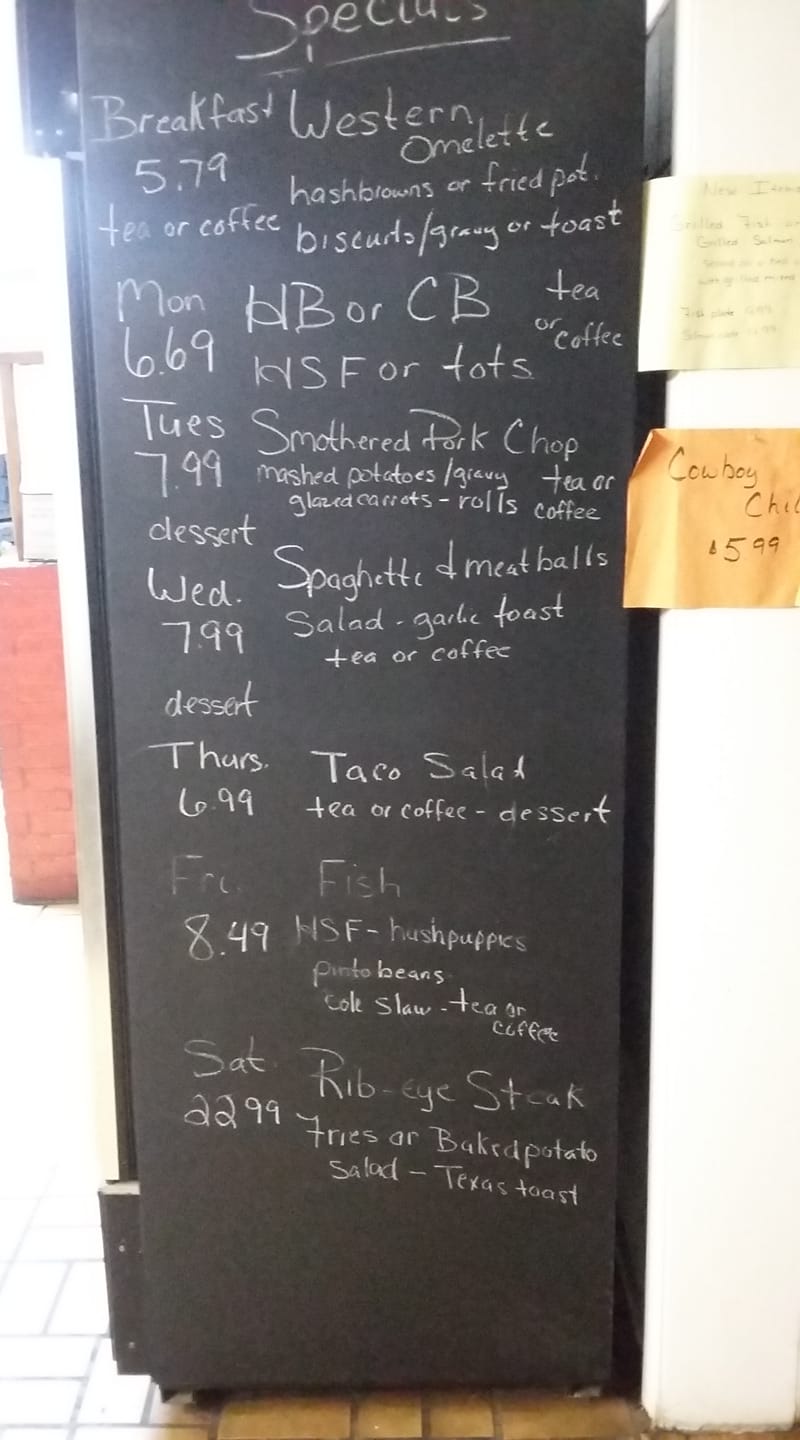 Specials
Breakfast Western Omelette
5.79 hashbrowns or fried pot.
tea or coffee biscuits/gravy or toast
Mon HB or CB tea
or coffee
6.69 HSF or tots
Tues Smothered Pork Chop
7.99 mashed potatoes/gravy tea or
glazed carrots - rolls coffee
dessert
Wed. Spaghetti & meatballs
7.99 Salad - garlic toast
tea or coffee
dessert
Thurs. Taco Salad
6.99 tea or coffee - dessert
Fri. Fish
8.49 HSF - hushpuppies
pinto beans
Cole Slaw - tea or
coffee
Sat Rib-eye Steak
22 99 Fries or Baked potato
Salad - Texas toast
New Items
Grilled Fish
Grilled Salmon
Fish plate
Cowboy
Chil
$5 99